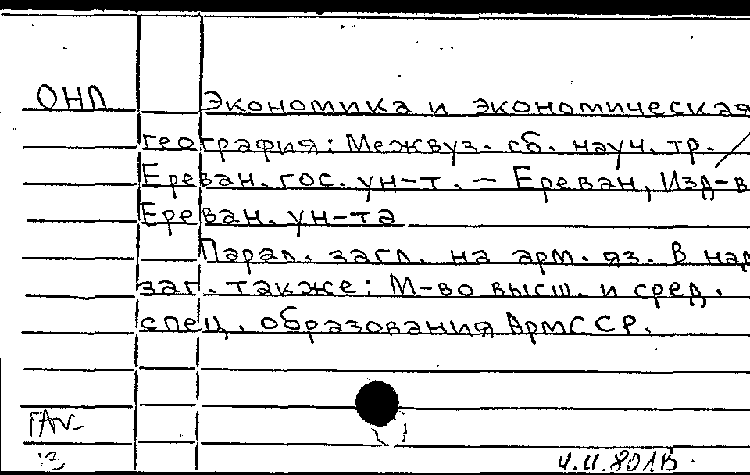 ОНЛ Экономика и экономическая
география: Межвуз. сб. науч. тр. /
Ереван. гос. ун-т. — Ереван, Изд-в
Ереван. ун-та
Парал. загл. на арм. яз. В над
заг. также: М-во высш. и сред.
спец. образования АрмССР.